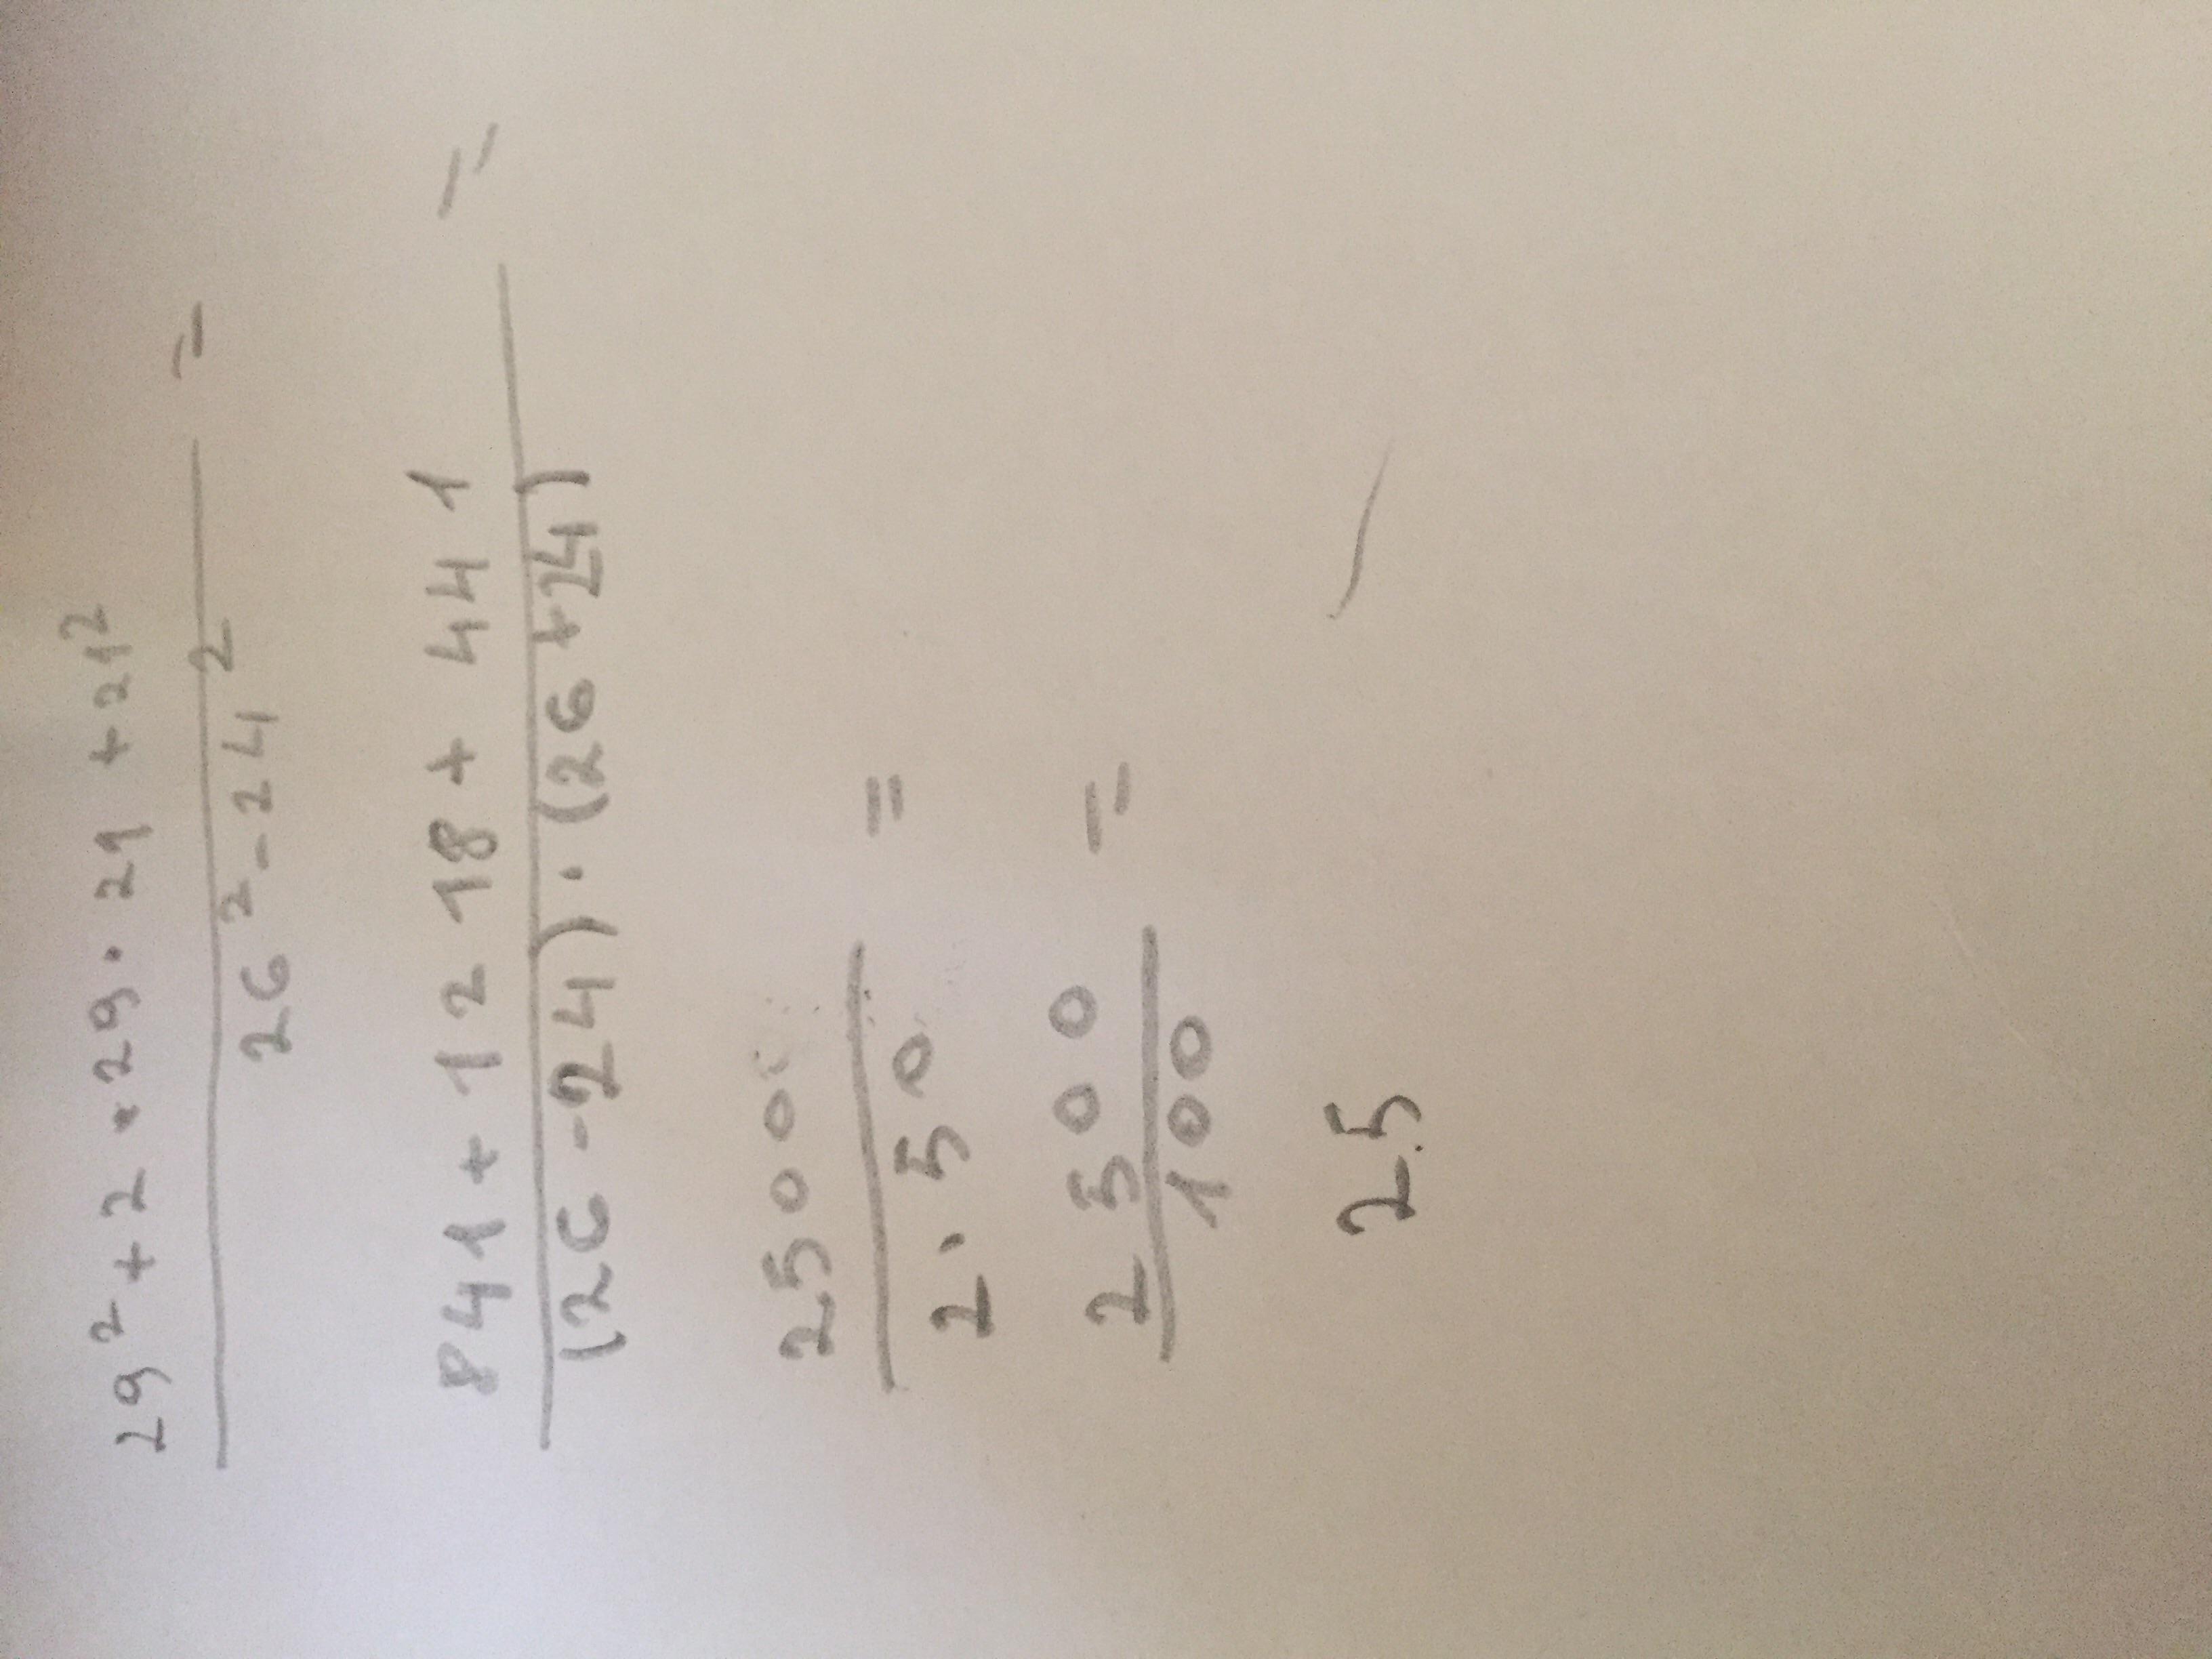 29² + 2 · 29 · 21 + 21²
26² - 24² =
841 + 1218 + 441
(26 - 24) · (26 + 24) =
2500
2 · 50 =
2500
100 =
2.5